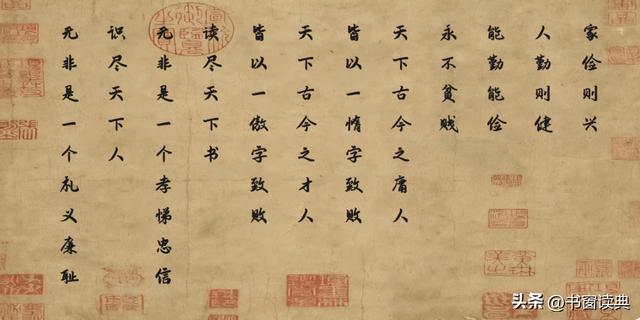 家俭则兴
人勤则健
能勤能俭
永不贫贱
天下古今之庸人
皆以一惰字致败
天下古今之才人
皆以一傲字致败
读尽天下书
无非是一个孝悌忠信
识尽天下人
无非是一个礼义廉耻
头条 @书窗读典